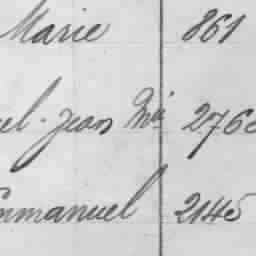 Marie 861
el-Jean Mie 276
Emmanuel 2145